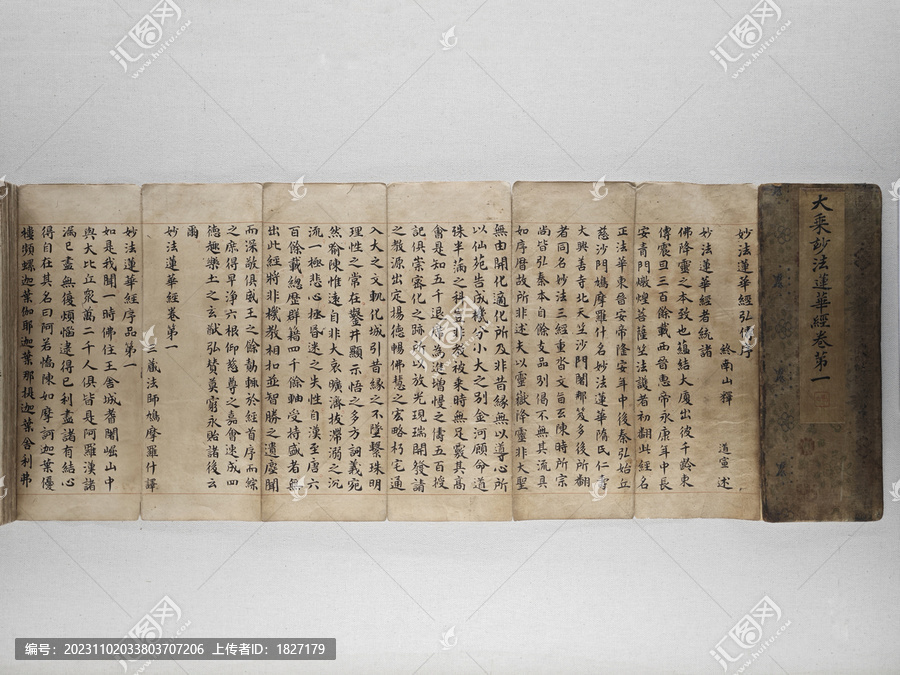 大乘妙法蓮華經卷第一
妙法蓮華經弘傳序
終南山釋 道宣述
妙法蓮華經者統諸
佛降靈之本致也蘊結大夏出彼千齡東
傳震旦三百餘載西晉惠帝永康年中長
安青門燉煌菩薩竺法護者初翻此經名
正法華東晉安帝隆安年中後秦弘始丘
慈沙門鳩摩羅什名妙法蓮華隋氏仁壽
大興善寺北天竺沙門闍那笈多後所翻
者同名妙法三經重沓文旨互陳時所宗
尚皆弘秦本自餘支品別偈不無其流具
如序曆故所非述夫以靈嶽降靈非大聖
無由開化適化所及非昔緣無以導心所
以仙苑告成機分小大之別金河顧命道
珠半滿之科豈非教被乘時無足覈其高
會是知五千退席為進增慢之儔五百授
記俱崇密化之跡所以放光現瑞開發請
之教源出定揚德暢佛慧之宏略朽宅通
入大之文軌化城引昔緣之不墜繫珠明
理性之常在鑿井顯示悟之多方詞義宛
然喻陳惟遠自非大哀曠濟拔滯溺之沉
流一極悲心拯昏迷之失性自漢至唐六
百餘載總歷群籍四千餘軸受持盛者無
出此經將非機教相扣並智勝之遺塵聞
而深敬俱威王之餘勣輒於經首序而綜
之庶得早淨六根仰慈尊之嘉會速成四
德趣樂土之玄猷弘贊莫窮永貽諸後云
爾
妙法蓮華經卷第一
三藏法師鳩摩羅什譯
妙法蓮華經序品第一
如是我聞一時佛住王舍城耆闍崛山中
與大比丘眾萬二千人俱皆是阿羅漢諸
漏已盡無復煩惱逮得己利盡諸有結心
得自在其名曰阿若憍陳如摩訶迦葉優
樓頻螺迦葉伽耶迦葉那提迦葉舍利弗
汇图网
huitu.com
编号：20231102033803707206 上传者ID：1827179